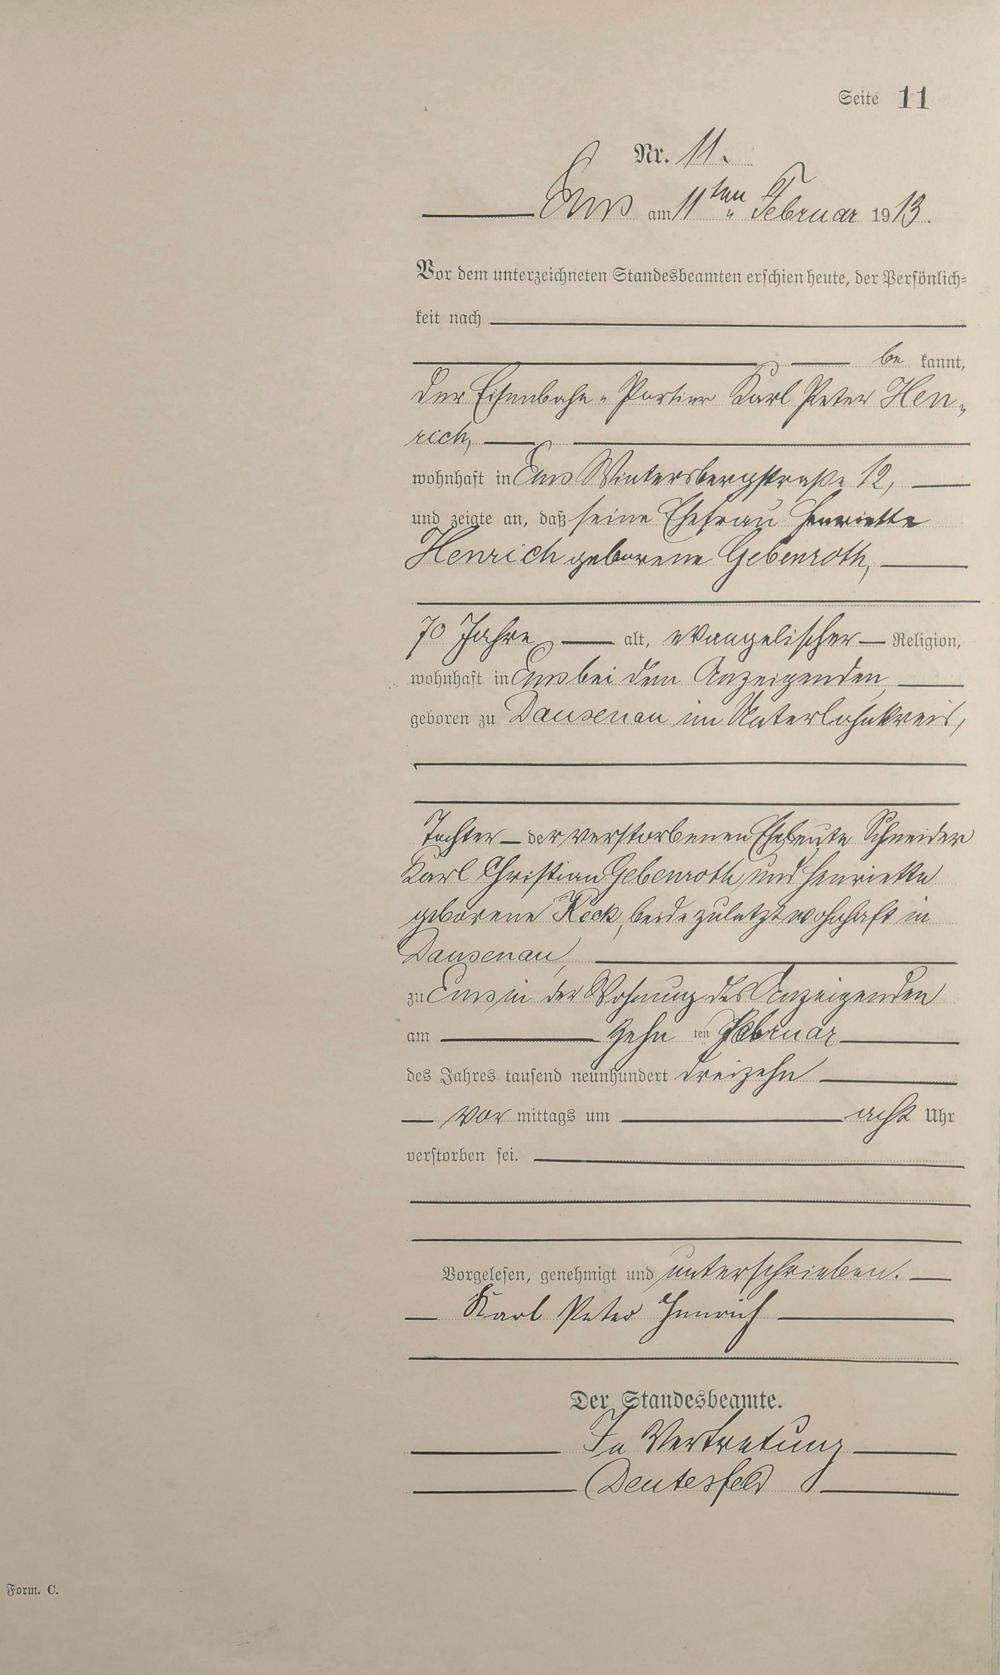 Seite 11
Nr. 11.
Ems am 11ten Februar 1913.
Vor dem unterzeichneten Standesbeamten erschien heute, der Persönlich=
keit nach
be kannt,
der Eisenbahn-Portier Karl Peter Hen-
rich,
wohnhaft in Ems Wintersbergstraße 12,
und zeigte an, daß seine Ehefrau Henriette
Henrich geborene Gebenroth,
70 Jahre alt, evangelischer Religion,
wohnhaft in Ems bei dem Anzeigenden
geboren zu Dausenau im Unterlahnkreis,
Tochter der verstorbenen Eheleute Schneider
Karl Christian Gebenroth und Henriette
geborene Keck, beide zuletzt wohnhaft in
Dausenau,
zu Ems in der Wohnung des Anzeigenden
am zehn ten Februar
des Jahres tausend neunhundert dreizehn
vor mittags um acht Uhr
verstorben sei.
Vorgelesen, genehmigt und unterschrieben.
Karl Peter Henrich
Der Standesbeamte.
In Vertretung
Deutesfeld
Form. C.